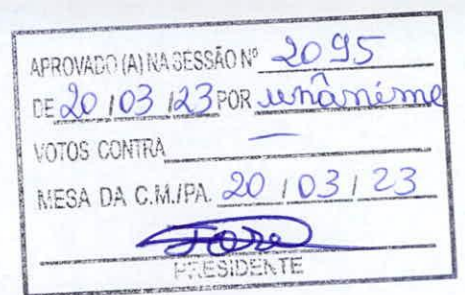 APROVADO (A) NA SESSÃO Nº 2095
DE 20 / 03 / 23 POR unânime
VOTOS CONTRA —
MESA DA C.M./PA. 20 / 03 / 23
PRESIDENTE